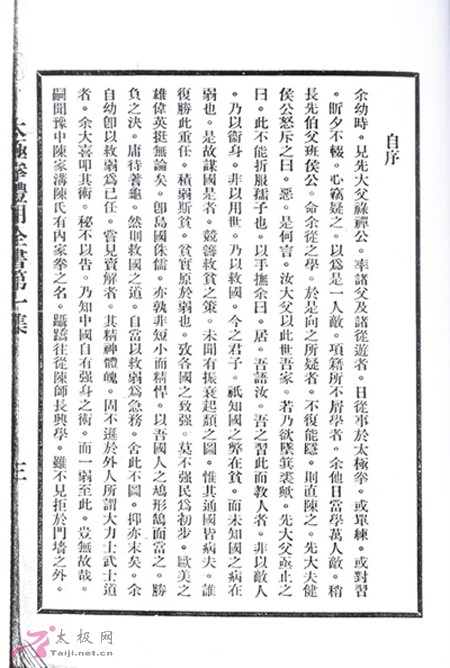 自序
余幼時。見先大父祿禪公。率諸父及諸從遊者。日從事於太極拳。或單練。或對習
。昕夕不輟。心竊疑之。以爲是一人敵。項籍所不屑學者。余他日當學萬人敵。稍
長先伯父班侯公。命余從之學。於是向之所疑者。不復能隱。則直陳之。先大夫健
侯公怒斥之曰。惡。是何言。汝大父以此世吾家。若乃欲墜箕裘歟。先大父亟止之
曰。此不能折服孺子也。以手撫余曰。居。吾語汝。吾之習此而教人者。非以敵人
。乃以衞身。非以用世。乃以救國。今之君子。祇知國之弊在貧。而未知國之病在
弱也。是故謀國是者。競籌救貧之策。未聞有振衰起頹之圖。惟其通國皆病夫。誰
復勝此重任。積弱斯貧。貧實原於弱也。攷各國之致强。莫不强民爲初步。歐美之
雄偉英挺無論矣。卽島國侏儒。亦孰非短小而精悍。以吾國人之鳩形鵠面當之。勝
負之決。庸待蓍龜。然則救國之道。自當以救弱爲急務。舍此不圖。抑亦末矣。余
自幼卽以救弱爲己任。嘗見賣解者。其精神體魄。固不遜於外人所謂大力士武士道
者。余大喜叩其術。秘不以告。乃知中國自有强身之術。而一弱至此。豈無故哉。
嗣聞豫中陳家溝陳氏有內家拳之名。躡蹻往從陳師長興學。雖不見拒於門墻之外。
太極拳體用全書第一集
太极网
Taiji.net.cn